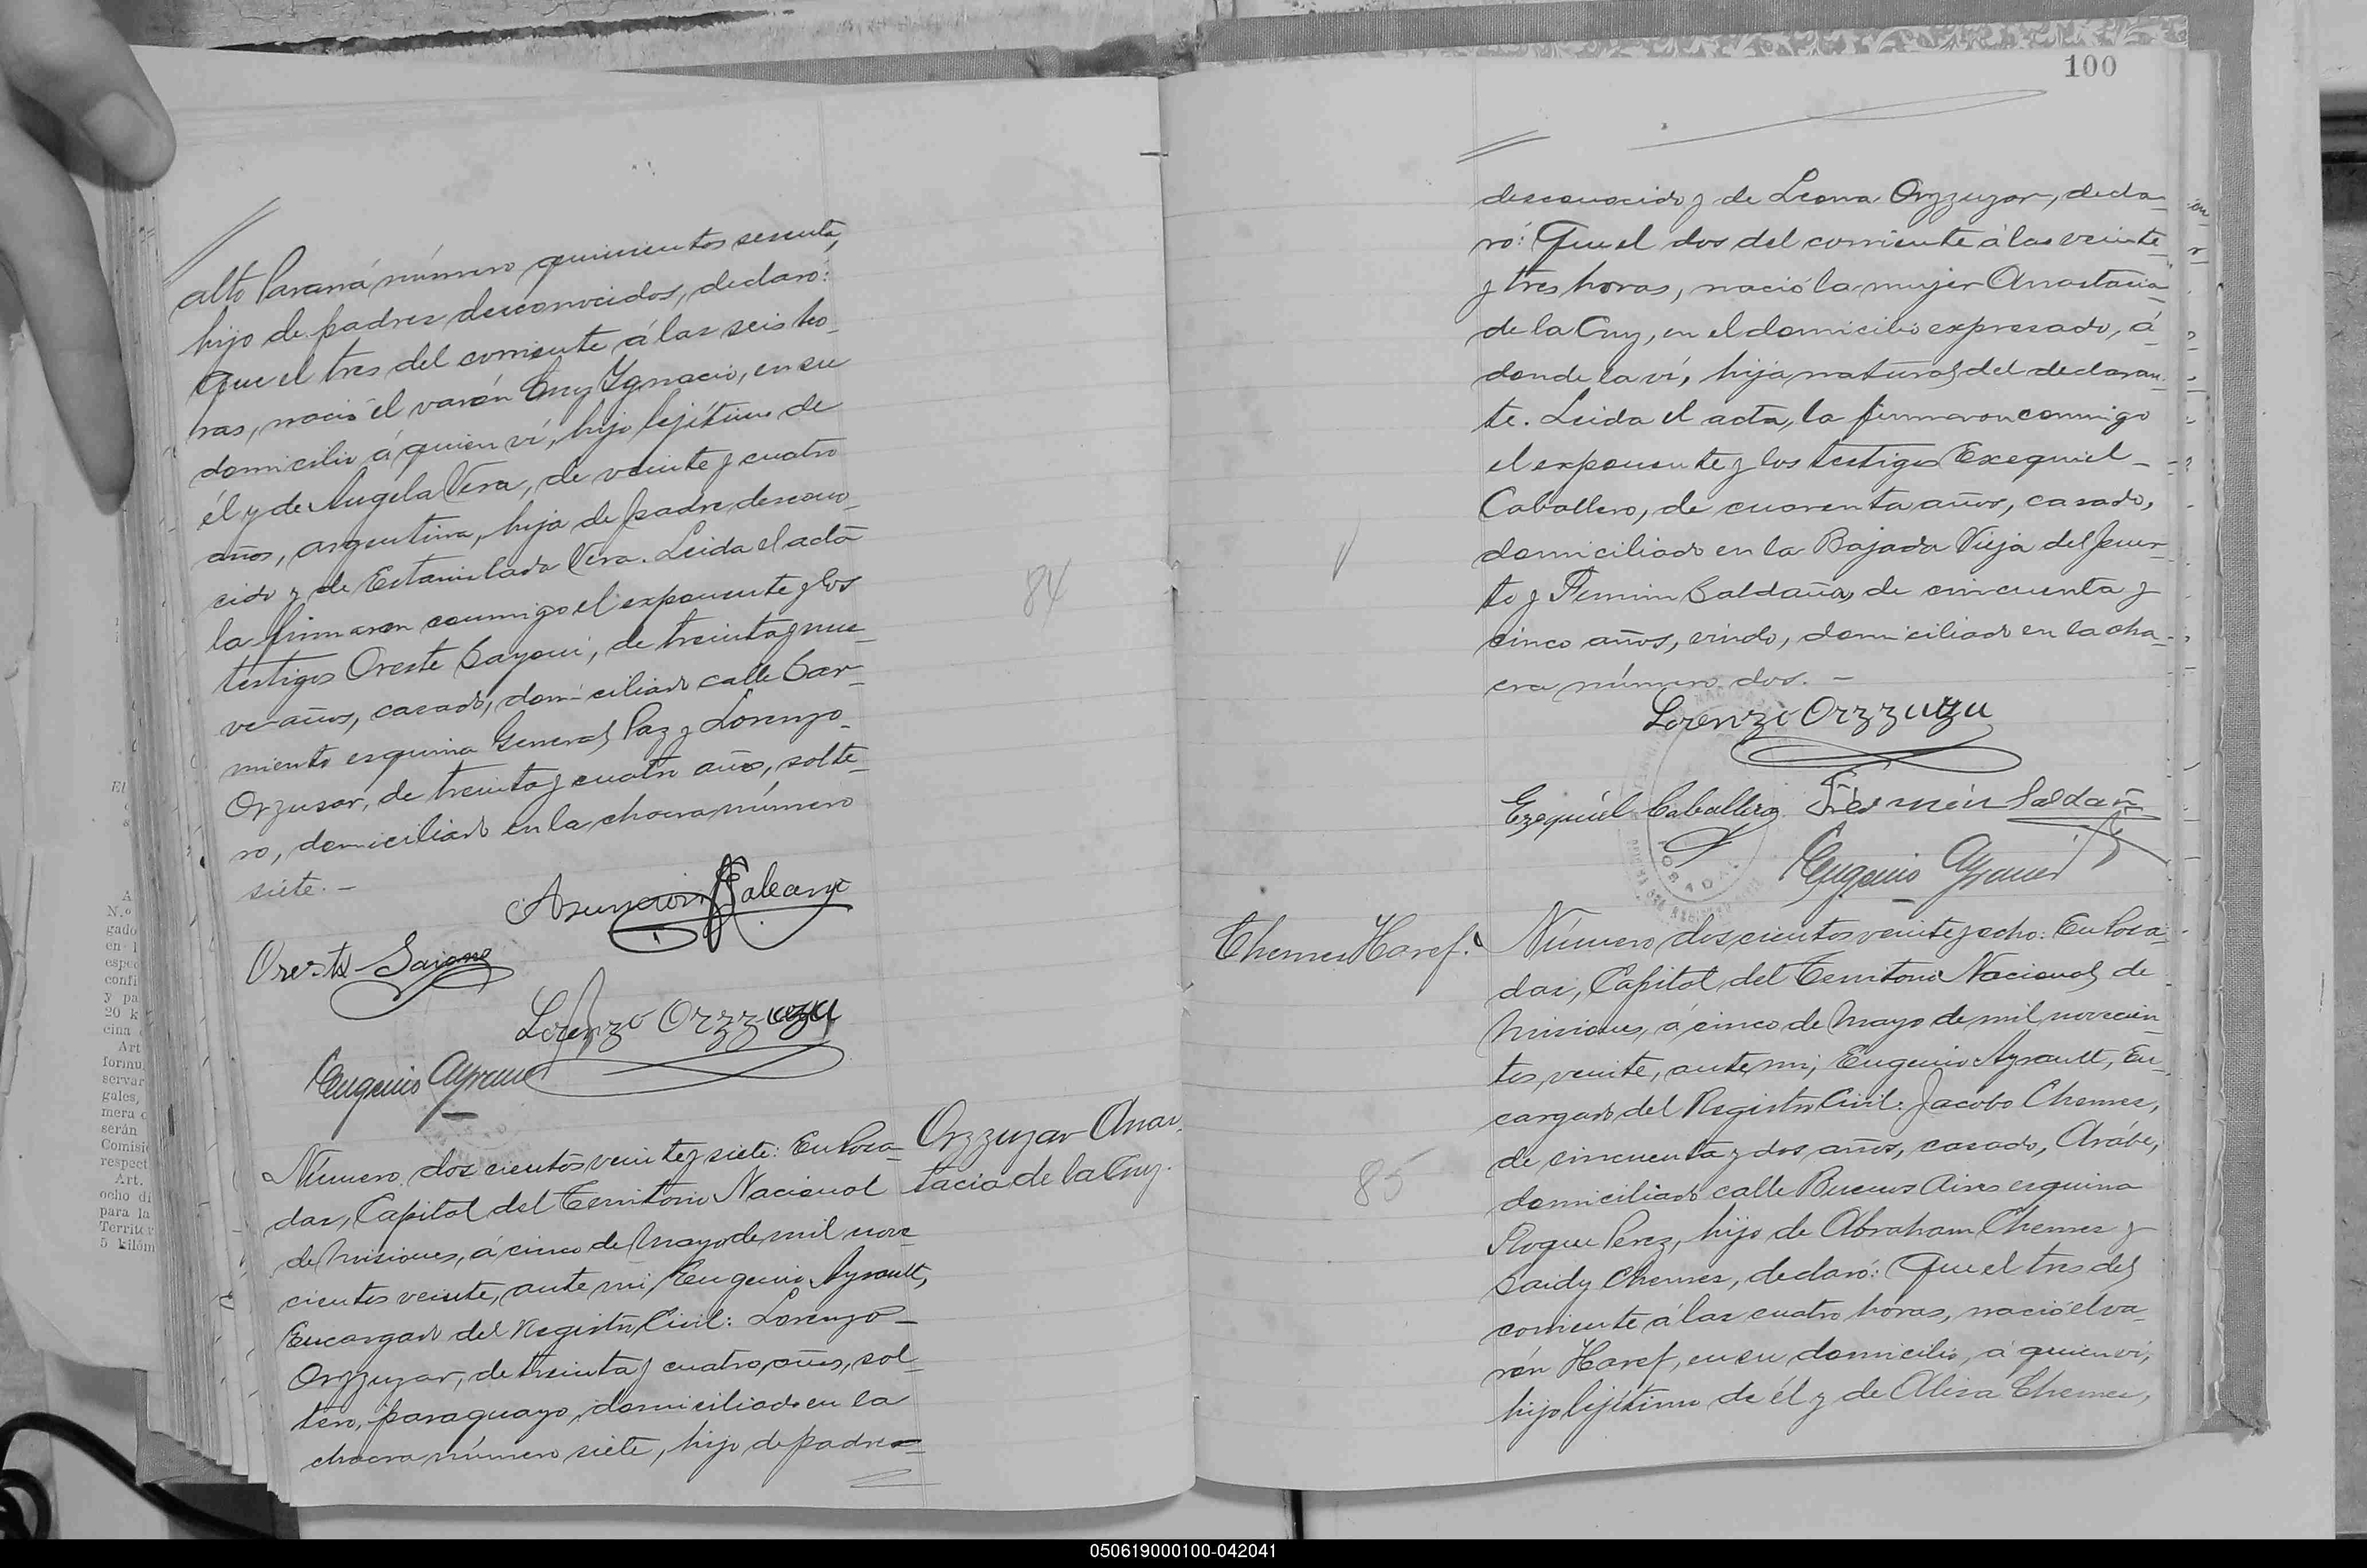 alto Paraná número quinientos sesenta,
hijo de padres desconocidos, declaró:
Que el tres del corriente á las seis ho-
ras, nació el varón Cruz Ygnacio, en su
domicilio á quien ví, hijo lejítimo de
él y de Angela Vera, de veinte y cuatro
años, argentina, hija de padre descono-
cido y de Estanislada Vera. Leida el acta
la firmaron conmigo el exponente y los
testigos Oreste Sayoni, de treinta y nue-
ve años, casado, domiciliado calle Sar-
miento esquina General Paz y Lorenzo
Orzusar, de treinta y cuatro años, solte-
ro, domiciliado en la chacra número
siete. —
Asunción Galeano
Oreste
Lorenzo Orzzuzu
Eugenio Ayrault
84
Orzzuzar Anas-
tacia de la Cruz.
Número dos cientos veinte y siete: En Posa-
das, Capital del Territorio Nacional
de Misiones, á cinco de Mayo de mil nove-
cientos veinte, ante mi, Eugenio Ayrault,
Encargado del Registro Civil: Lorenzo —
Orzzuzar, de treinta y cuatro años, sol-
tero, paraguayo, domiciliado en la
chacra número siete, hijo de padre
100
desconocido y de Leona Orzzuzar, decla-
ró: Que el dos del corriente á las veinte
y tres horas, nació la mujer Anastacia
de la Cruz, en el domicilio expresado, á
donde la ví, hija natural del declaran-
te. Leida el acta, la firmaron conmigo
el exponente y los testigos Exequiel —
Caballero, de cuarenta años, casado,
domiciliado en la Bajada Vieja del puer-
to y Fermin Saldaña, de cincuenta y
cinco años, viudo, domiciliado en la cha-
cra número dos. —
Lorenzo Orzzuzu
Ezequiel Caballero Fermín Saldañ
Eugenio Ayrault
Chemes Haref.
Número dos cientos veinte y ocho: En Posa-
das, Capital del Territorio Nacional de
Misiones, á cinco de Mayo de mil novecien-
tos veinte, ante mi, Eugenio Ayrault, En-
cargado del Registro Civil: Jacobo Chemes,
de cincuenta y dos años, casado, Arábe,
domiciliado calle Buenos Aires esquina
Roque Perez, hijo de Abraham Chemes y
Saidy Chemes, declaró: Que el tres del
corriente á las cuatro horas, nació el va-
rón Haref, en su domicilio, á quien ví,
hijo lejítimo de él y de Alisa Chemes,
85
050619000100-042041